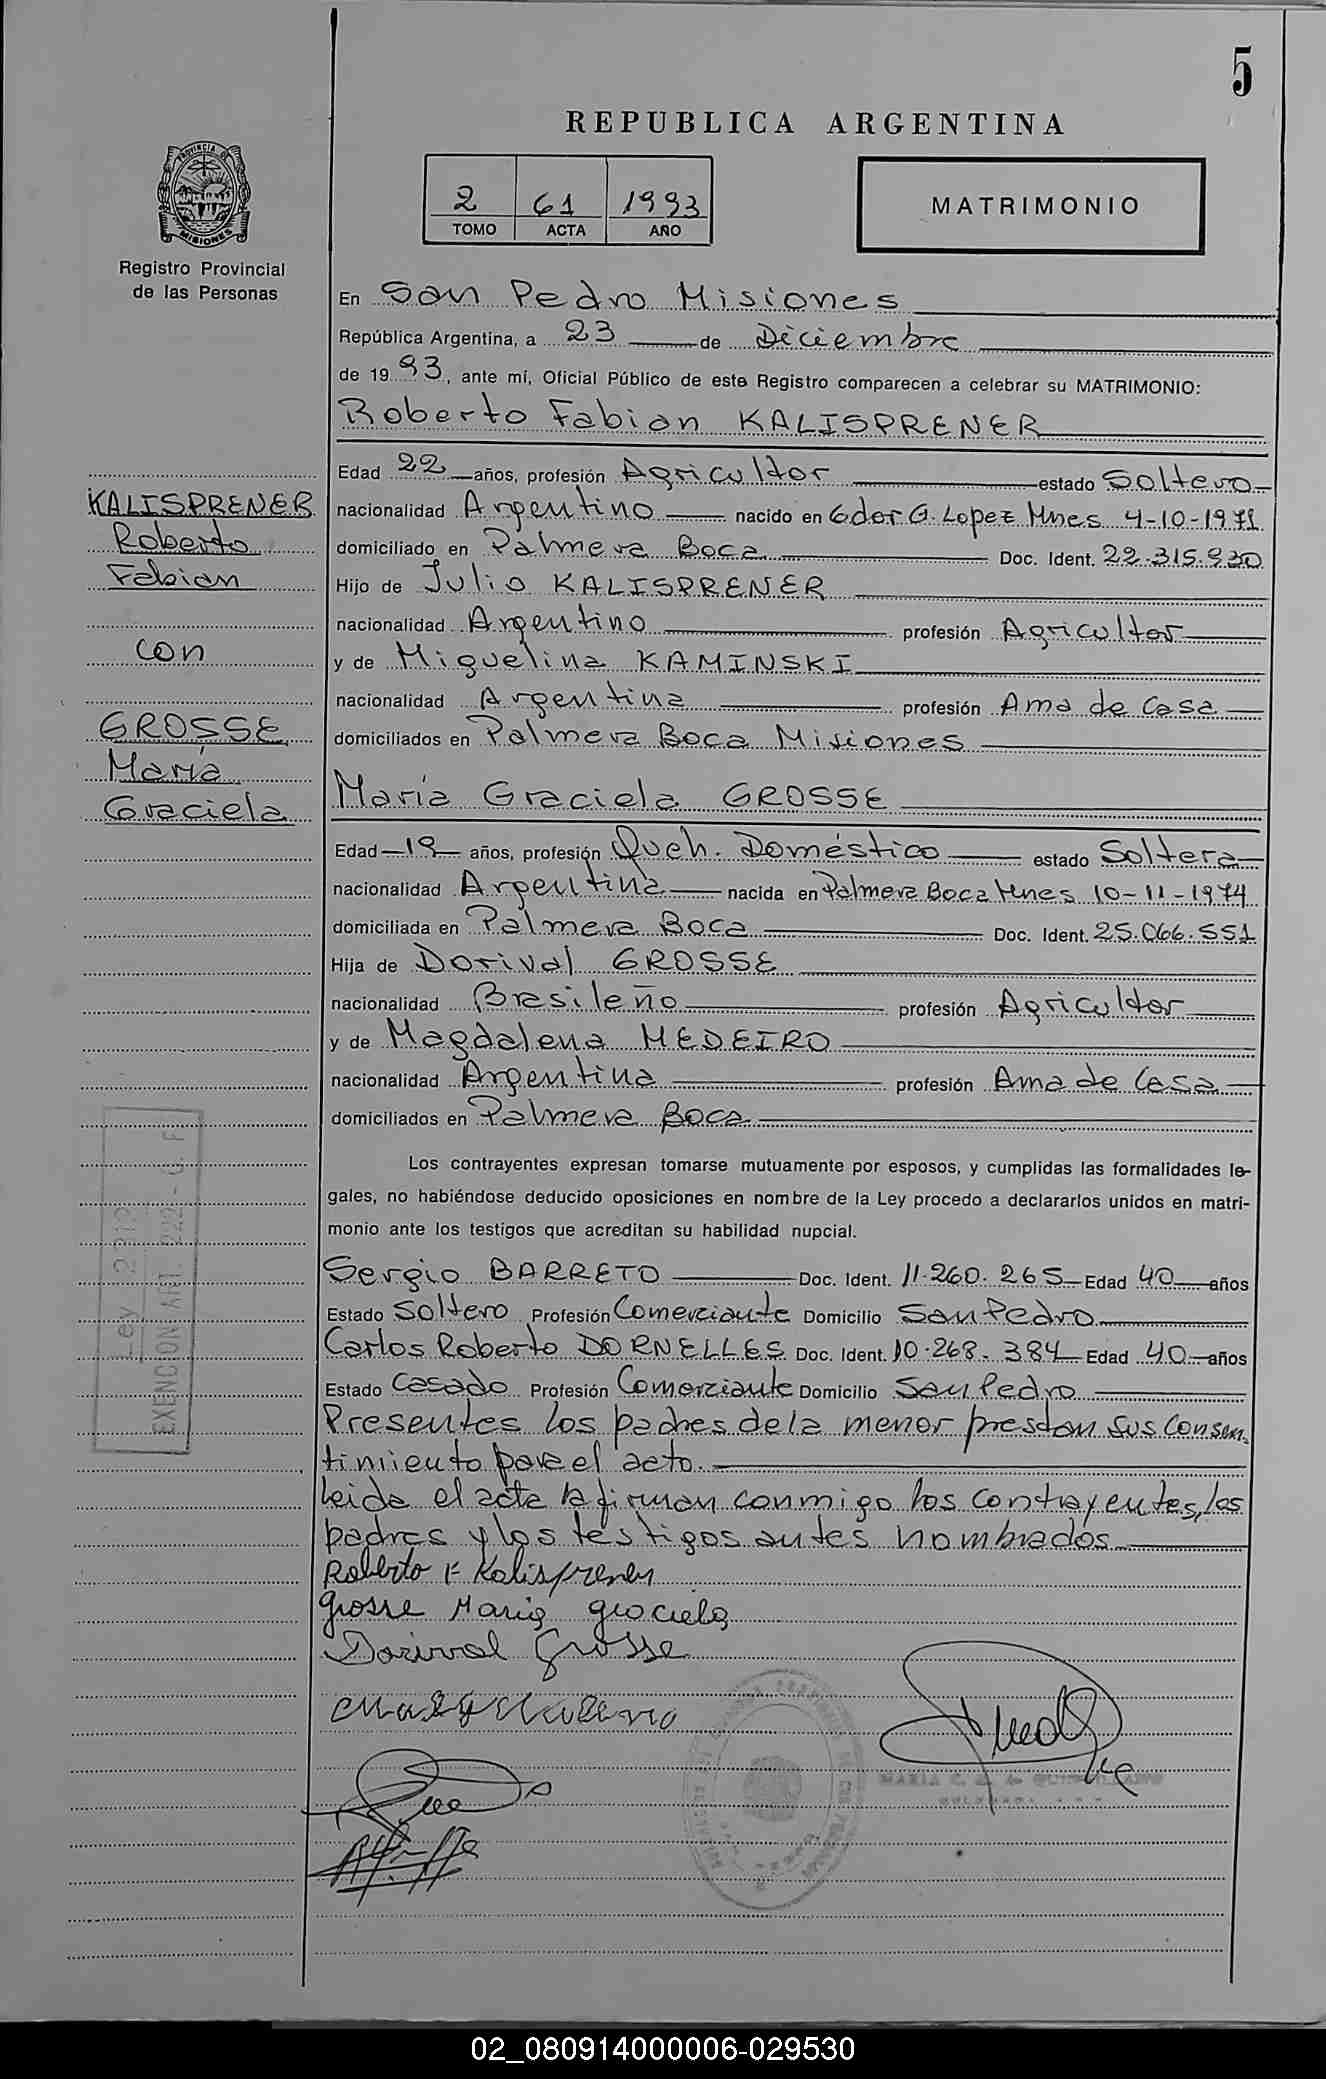 5
REPUBLICA ARGENTINA
2 61 1993
TOMO ACTA AÑO
MATRIMONIO
PROVINCIA DE
MISIONES
Registro Provincial
de las Personas
En San Pedro Misiones
República Argentina, a 23 de Diciembre
de 1993, ante mí, Oficial Público de este Registro comparecen a celebrar su MATRIMONIO:
Roberto Fabian KALISPRENER
Edad 22 años, profesión Agricultor estado Soltero
nacionalidad Argentino nacido en Gdor G. Lopez Mnes 4-10-1971
domiciliado en Palmera Boca Doc. Ident. 22.315.930
Hijo de Julio KALISPRENER
nacionalidad Argentino profesión Agricultor
y de Miguelina KAMINSKI
nacionalidad Argentina profesión Ama de Casa
domiciliados en Palmera Boca Misiones
KALISPRENER
Roberto
Fabian
con
GROSSE
María
Graciela
María Graciela GROSSE
Edad 19 años, profesión Queh. Doméstico estado Soltera
nacionalidad Argentina nacida en Palmera Boca Mnes 10-11-1974
domiciliada en Palmera Boca Doc. Ident. 25.066.551
Hija de Dorival GROSSE
nacionalidad Brasileño profesión Agricultor
y de Magdalena MEDEIRO
nacionalidad Argentina profesión Ama de Casa
domiciliados en Palmera Boca
Los contrayentes expresan tomarse mutuamente por esposos, y cumplidas las formalidades le-
gales, no habiéndose deducido oposiciones en nombre de la Ley procedo a declararlos unidos en matri-
monio ante los testigos que acreditan su habilidad nupcial.
Sergio BARRETO Doc. Ident. 11.260.265 Edad 40 años
Estado Soltero Profesión Comerciante Domicilio San Pedro
Carlos Roberto DORNELLES Doc. Ident. 10.268.384 Edad 40 años
Estado Casado Profesión Comerciante Domicilio San Pedro
Presentes los padres de la menor prestan sus consen-
timiento para el acto.
Leida el acta la firman conmigo los contrayentes, los
padres y los testigos antes nombrados
Ley
EXENCION ART. 222 - C. F.
Roberto F Kalisprener
Grosse Maria Graciela
Dorival Grosse
MARIA C.
02_080914000006-029530